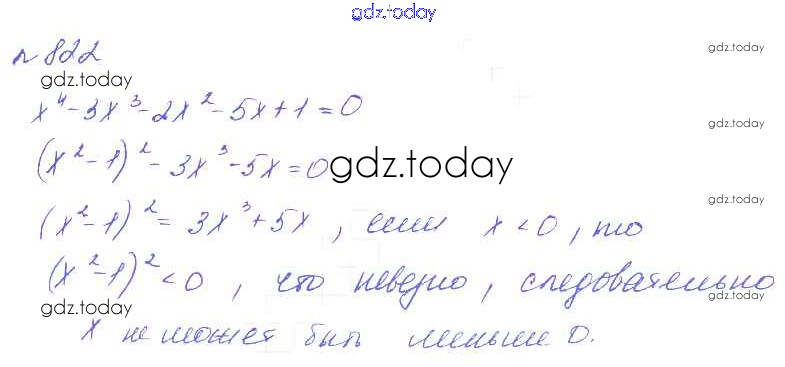 gdz.today
№ 822
gdz.today
gdz.today
x⁴-3x³-2x²-5x+1=0
gdz.today
(x²-1)²-3x³-5x=0
gdz.today
gdz.today
(x²-1)²=3x³+5x, если x<0, то
gdz.today
(x²-1)²<0, что неверно, следовательно
gdz.today
gdz.today
x не может быть меньше 0.
gdz.today